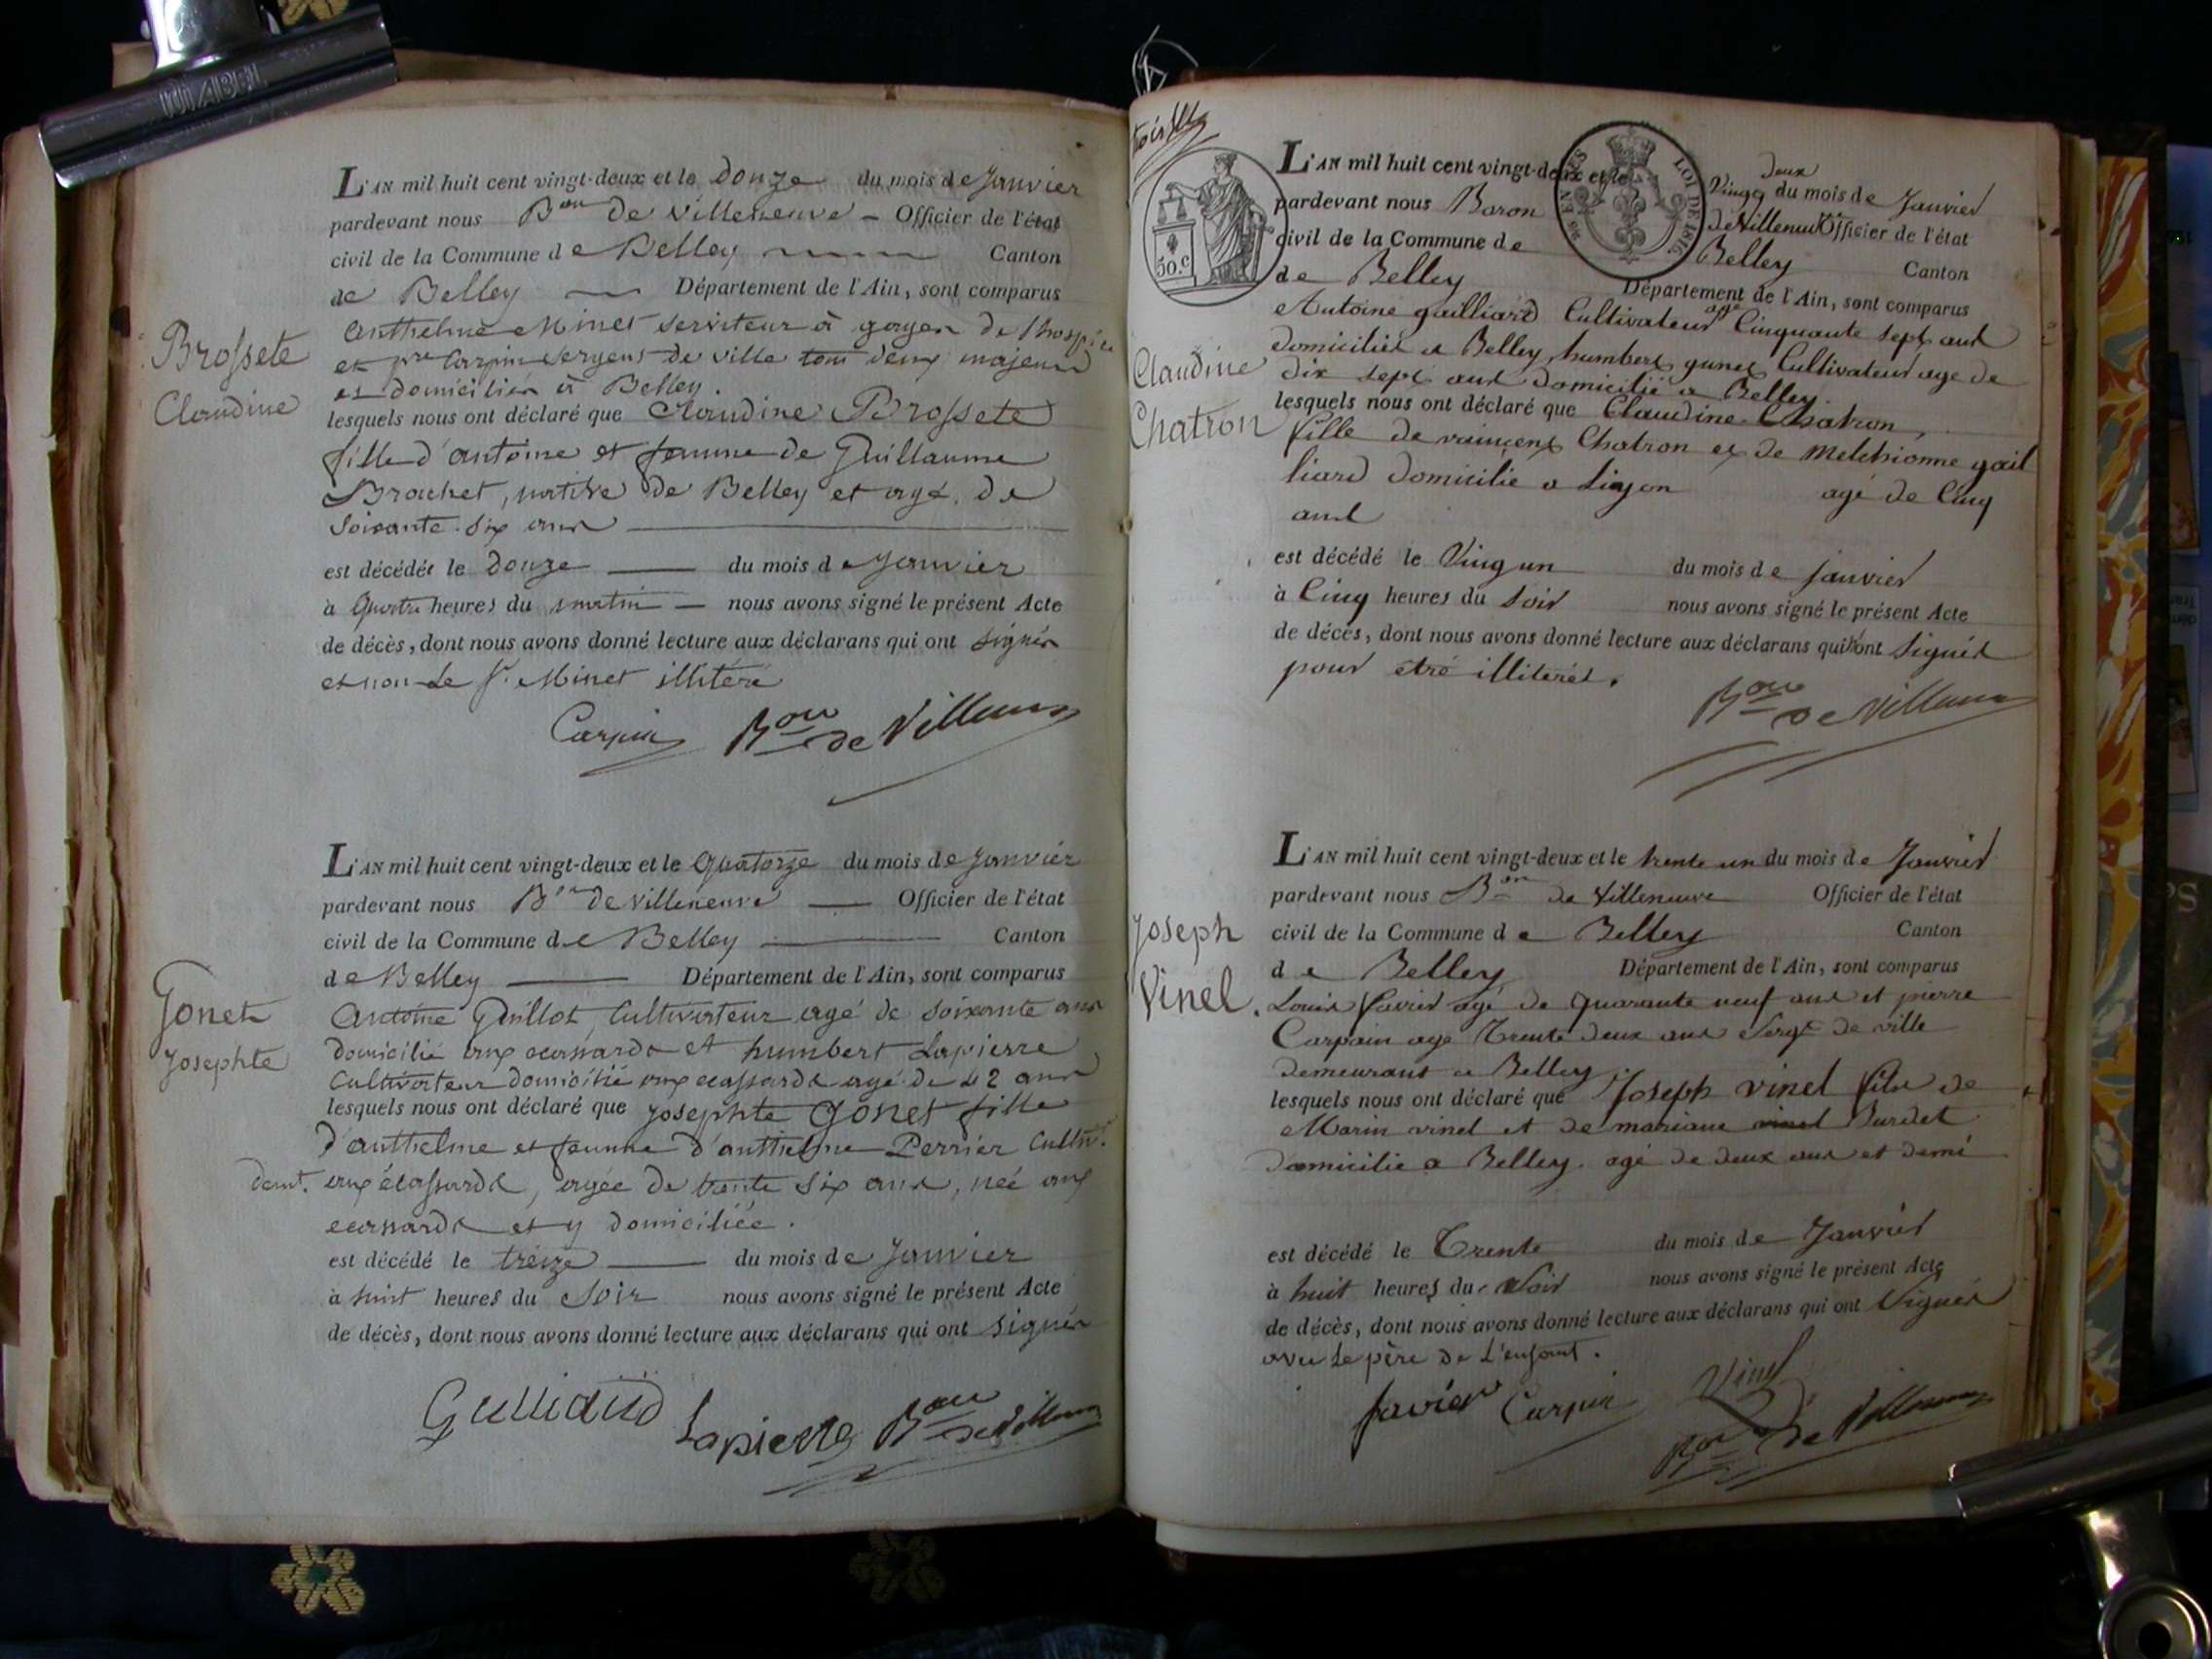 L'AN mil huit cent vingt-deux et le Douze du mois de Janvier
pardevant nous Bon de Villeneuve – Officier de l'état
civil de la Commune de Belley Canton
de Belley Département de l'Ain, sont comparus
Anthelme Minet serviteur à gages de l'hospice
et pre Carpin sergent de ville tous deux majeurs
et domiciliés à Belley.
Brossete
Claudine
lesquels nous ont déclaré que Claudine Brossete
fille d'antoine et femme de Guillaume
Brachet, native de Belley et agé, de
soixante-six ans
est décédée le douze du mois de Janvier
à Quatre heures du matin — nous avons signé le présent Acte
de décès, dont nous avons donné lecture aux déclarans qui ont signés
et non le Sr. Minet illitéré
Carpin Bon de Villeneuve
L'AN mil huit cent vingt-deux et le Quatorze du mois de Janvier
pardevant nous Bon de Villeneuve — Officier de l'état
civil de la Commune de Belley Canton
de Belley Département de l'Ain, sont comparus
Gonet
Josephte
Antoine Guillot, Cultivateur agé de soixante ans
domicilié aux ecassards et humbert Lapierre
Cultivateur domicilié aux ecassards agé de 42 ans
lesquels nous ont déclaré que Josephte Gonet fille
d'anthelme et femme d'anthelme Perrier Cultivr.
demt. aux écassards, agée de trente six ans, née aux
ecassards et y domiciliée.
est décédé le treize du mois de Janvier
à huit heures du soir nous avons signé le présent Acte
de décès, dont nous avons donné lecture aux déclarans qui ont signés
Lapierre Bon de Villeneuve
50.c
LOI DE 1816
L'AN mil huit cent vingt-deux et le Vingt deux du mois de Janvier
pardevant nous Baron de Villeneuve Officier de l'état
civil de la Commune de Belley Canton
de Belley Département de l'Ain, sont comparus
Antoine gailliard Cultivateur agé Cinquante sept ans
domicilié a Belley, humbert gunet Cultivateur age de
dix sept ans domicilié a Belley.
Claudine
Chatron
lesquels nous ont déclaré que Claudine Chatron,
fille de vaincent Chatron et de Melchionne gail
liard domicilié a agé de Cinq
ans
est décédé le Vingt un du mois de janvier
à Cinq heures du soir nous avons signé le présent Acte
de décès, dont nous avons donné lecture aux déclarans qui n'ont signés
pour etre illiterés.
Bon de Villeneuve
L'AN mil huit cent vingt-deux et le trente un du mois de Janvier
pardevant nous Bon de Villeneuve Officier de l'état
civil de la Commune de Belley Canton
de Belley Département de l'Ain, sont comparus
Joseph
Vinel.
Louis favier agé de quarante neuf ans et pierre
Carpain age Trente deux ans Sergt de ville
demeurant a Belley
lesquels nous ont déclaré que Joseph vinel fils de
Marin vinel et de mariane vinel Burdet
domicilie a Belley. agé de deux ans et demi
est décédé le Trente du mois de Janvier
à huit heures du Soir nous avons signé le présent Acte
de décès, dont nous avons donné lecture aux déclarans qui ont Signés
avec le père de L'enfant.
favier Carpin Vinel
Bon de Villeneuve